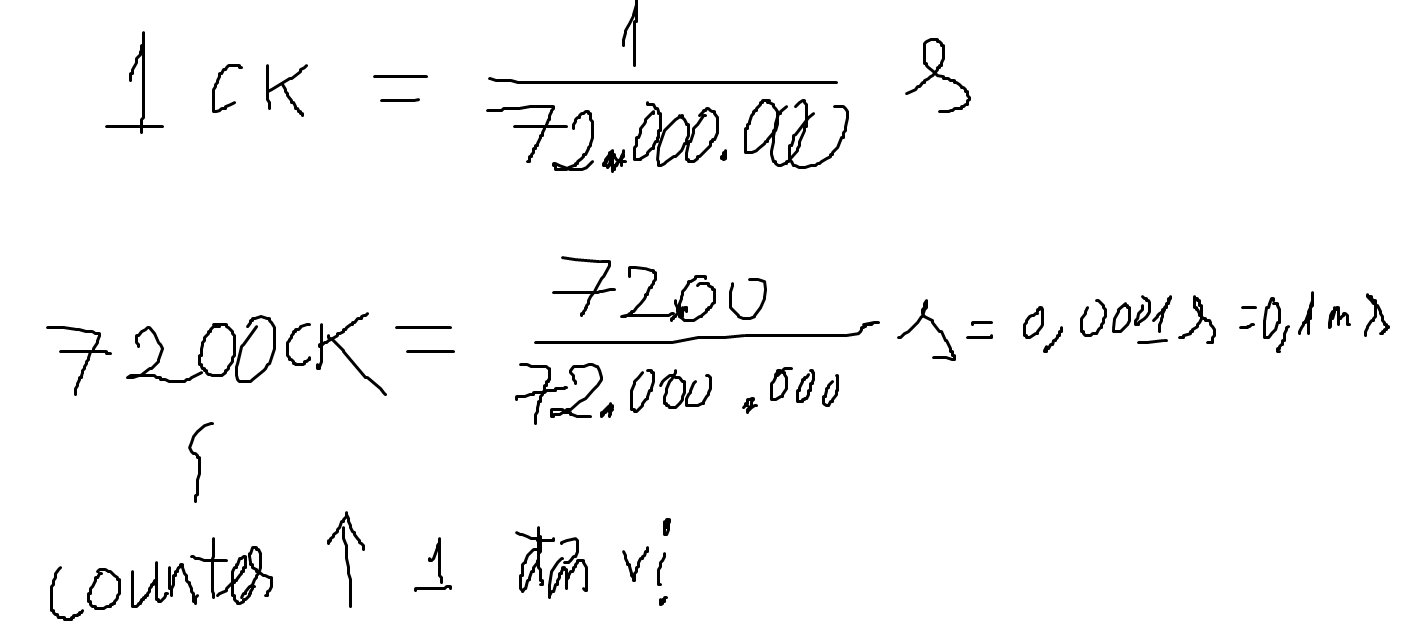 1 CK = 1 / 72.000.000 s
7200CK = 7200 / 72.000.000 s = 0,0001 s = 0,1 ms
counter ↑ 1 đơn vị